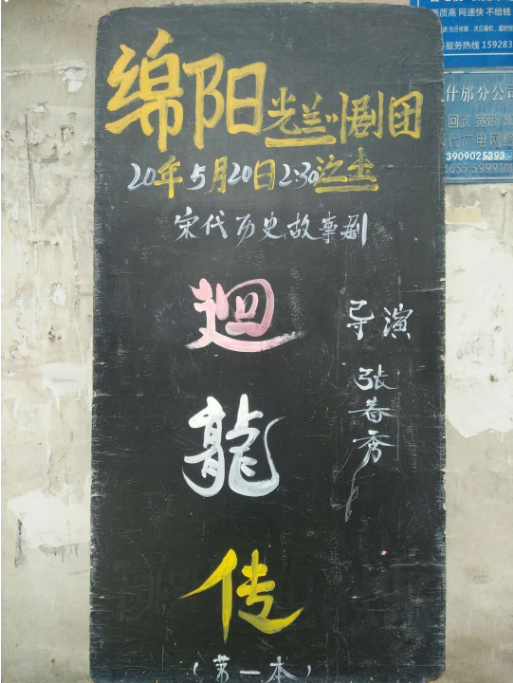 绵阳光兰川剧团
20年5月20日2:30注尘
宋代历史故事剧
迴龍传
导演
张春秀
(第一本)
质高 网速快 不给钱
服务热线 15928
什邡分公司
3909025393